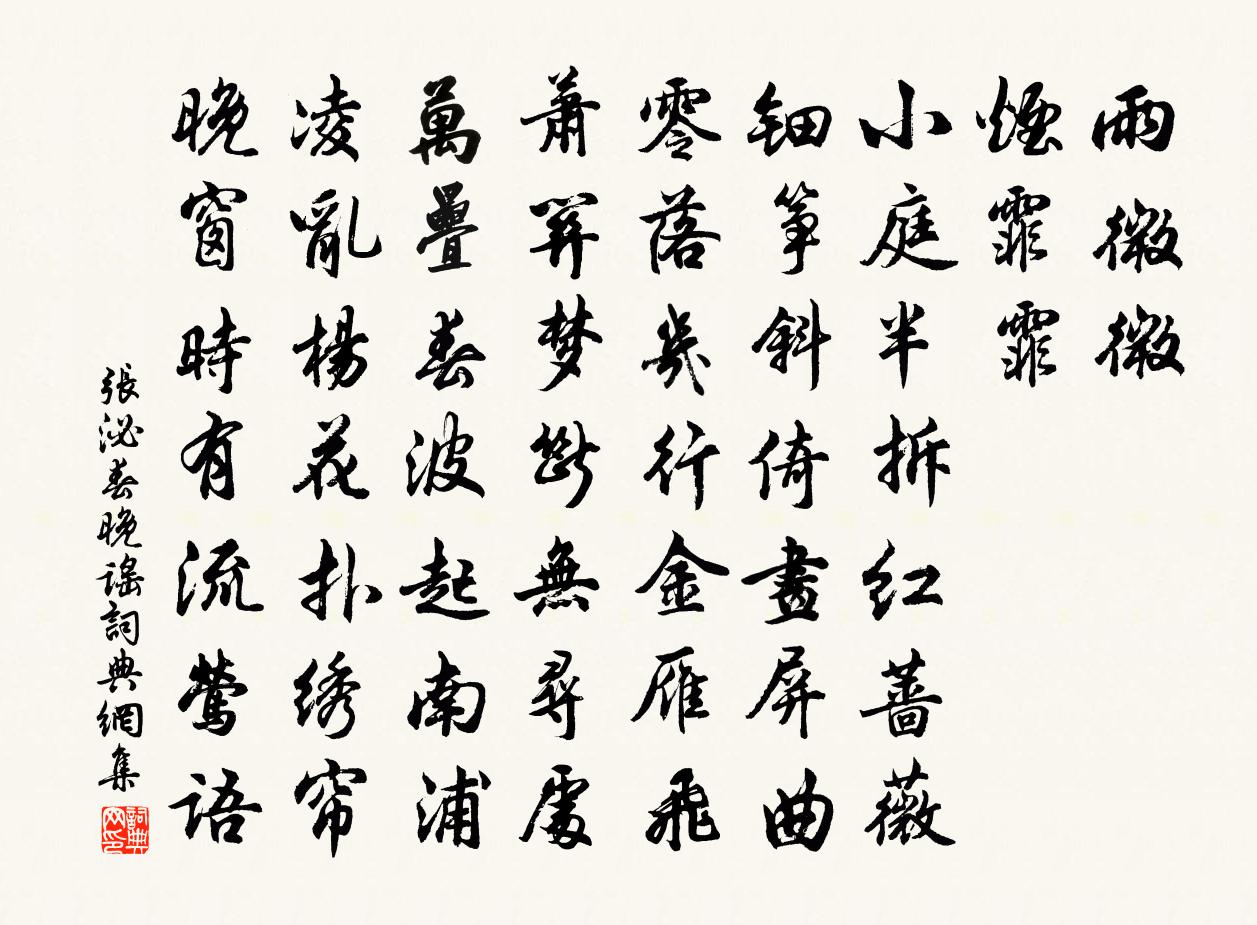 雨微微
煙霏霏
小庭半拆红薔薇
钿筝斜倚畫屏曲
零落幾行金雁飛
蕭關梦斷無尋處
萬疊春波起南浦
凌亂楊花扑绣帘
晚窗時有流鶯語
張泌春晚謡詞典網集
詞典网印